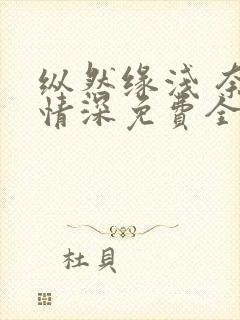 纵然缘浅 奈
情深免費全
杜貝